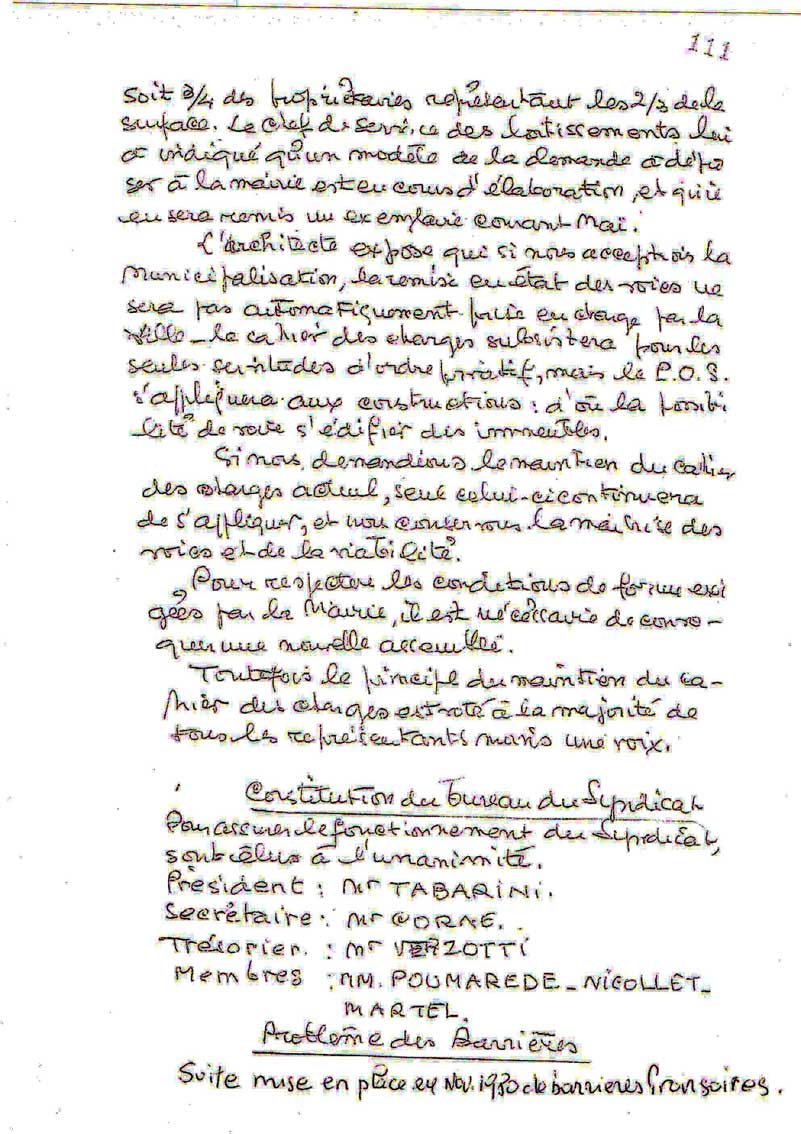 111
soit 3/4 des propriétaires représentant les 2/3 de la
surface. Le Chef de Service des Lotissements lui
a indiqué qu'un modèle de la demande à dépo
ser à la mairie est en cours d'élaboration, et qu'il
en sera remis un exemplaire courant Mai.
L'architecte expose que si nous acceptions la
Municipalisation, la remise en état des voies ne
sera pas automatiquement prise en charge par la
Ville - le cahier des charges subsistera pour les
seules servitudes d'ordre privatif, mais le P.O.S.
s'appliquera aux constructions : d'où la possibi
lité de voir s'édifier des immeubles.
Si nous demandions le maintien du cahier
des charges actuel, seul celui-ci continuera
de s'appliquer, et nous conservons la maîtrise des
voies et de la viabilité.
Pour respecter les conditions de forme exi
gées par la Mairie, il est nécéssaire de convo-
quer une nouvelle assemblé.
Toutefois le principe du maintien du ca-
hier des charges est voté à la majorité de
tous les représentants moins une voix.
Constitution du bureau du Syndicat
Pour assurer le fonctionnement du Syndicat,
sont élus à l'unanimité.
Président : Mr TABARINI.
Secrétaire : Mr CORNE.
Trésorier : Mr VERZOTTI
Membres : MM. POUMAREDE - NICOLLET -
MARTEL.
Problème des Barrières
Suite mise en place en Nov. 1980 de barrieres